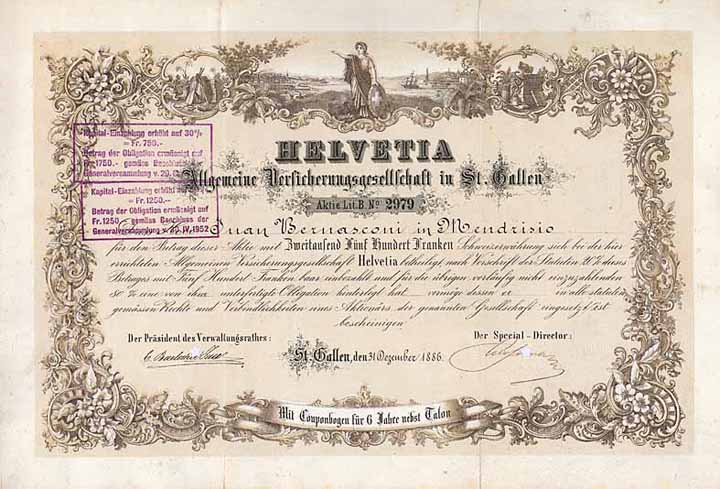 HELVETIA
Allgemeine Versicherungsgesellschaft in St. Gallen
Aktie Lit. B. No 2979
Kapital-Einzahlung erhöht auf 30%
= Fr. 750.-
Betrag der Obligation ermässigt auf
Fr. 1750.- gemäss Beschluss der
Generalversammlung v. 29.
Kapital-Einzahlung erhöht auf
= Fr. 1250.-
Betrag der Obligation ermässigt auf
Fr. 1250.- gemäss Beschluss der
Generalversammlung v. IV. 1952
Juan Bernasconi in Mendrisio
für den Betrag dieser Aktie mit Zweitausend Fünf Hundert Franken Schweizerwährung sich bei der hier
errichteten Allgemeinen Versicherungsgesellschaft Helvetia betheiligt, nach Vorschrift der Statuten 20% dieses
Betrages mit Fünf Hundert Franken baar einbezahlt und für die übrigen vorläufig nicht einzuzahlenden
80% eine von ihm unterfertigte Obligation hinterlegt hat vermöge dessen er in alle statuten-
gemässen Rechte und Verbindlichkeiten eines Aktionärs der genannten Gesellschaft eingesetzt ist
bescheinigen
Der Präsident des Verwaltungsrathes:
Der Special-Director:
St. Gallen, den 31 Dezember 1886.
Mit Couponbogen für 6 Jahre nebst Talon